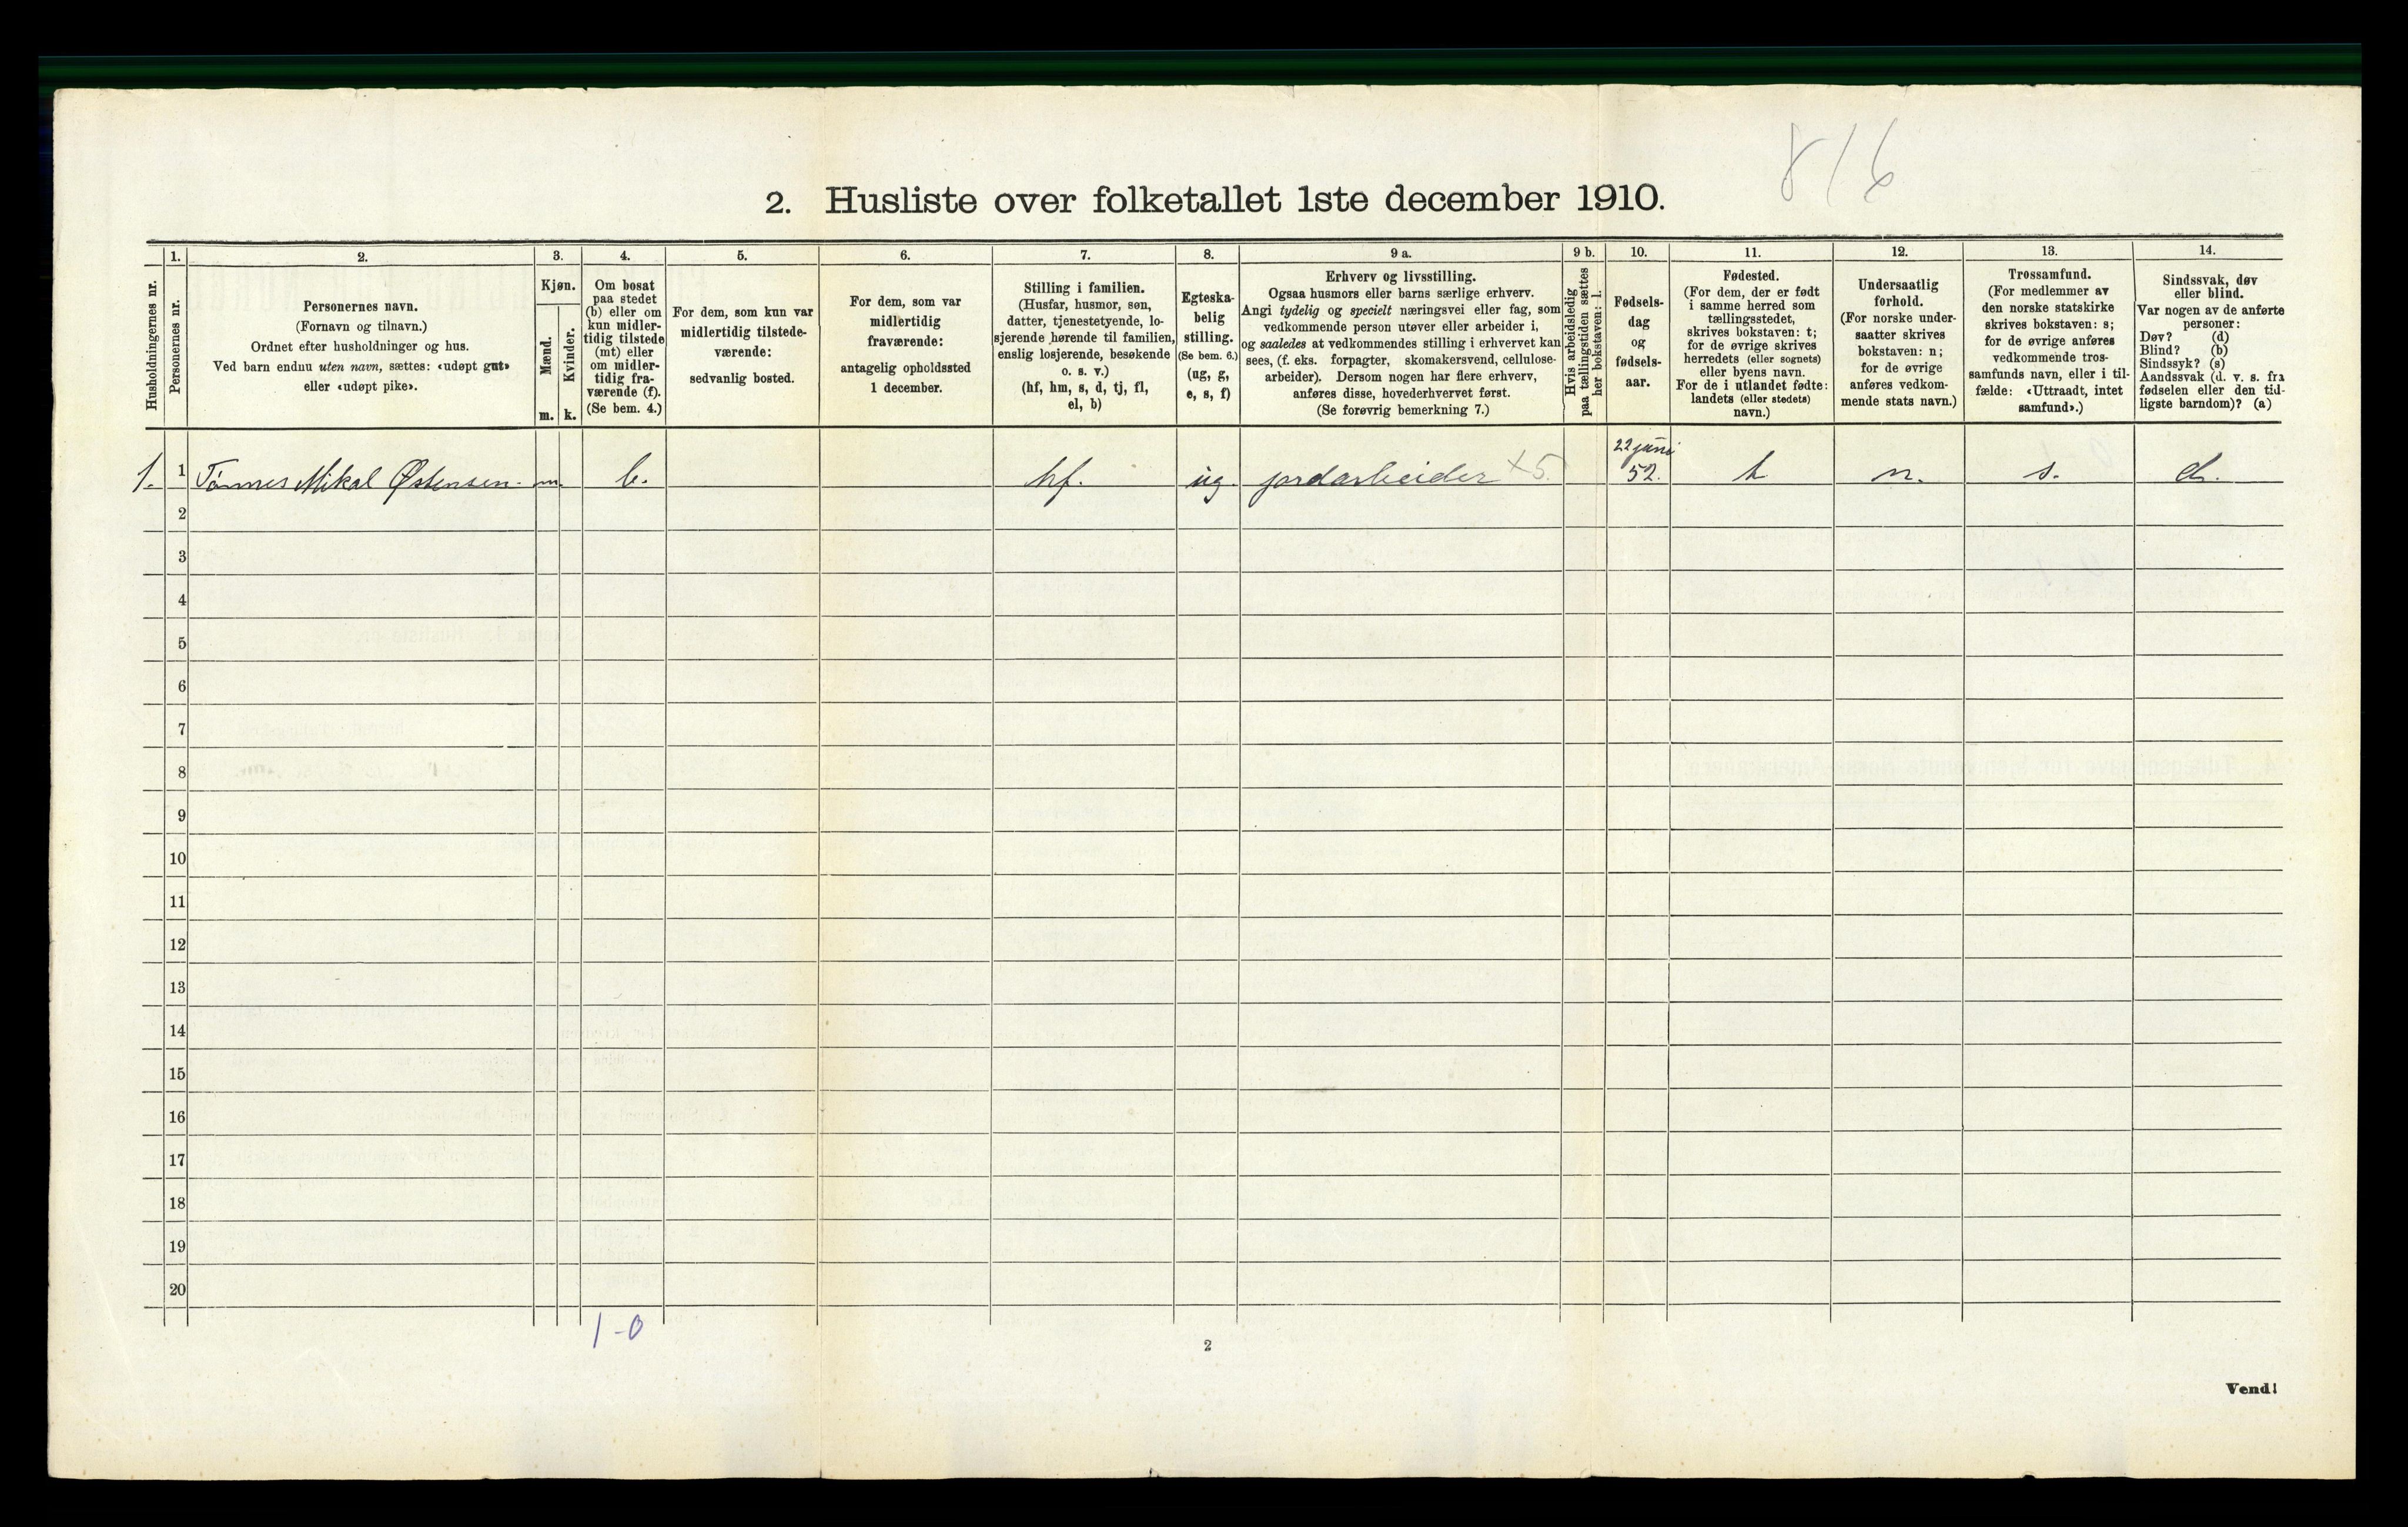 8/6
2. Husliste over folketallet 1ste december 1910.
Husholdningernes nr.
1.
Personernes nr.
2.
Personernes navn.
(Fornavn og tilnavn.)
Ordnet efter husholdninger og hus.
Ved barn endnu uten navn, sættes: «udøpt gut»
eller «udøpt pike».
3.
Kjøn.
Mænd.
m.
Kvinder.
k.
4.
Om bosat
paa stedet
(b) eller om
kun midler-
tidig tilstede
(mt) eller
om midler-
tidig fra-
værende (f).
(Se bem. 4.)
5.
For dem, som kun var
midlertidig tilstede-
værende:
sedvanlig bosted.
6.
For dem, som var
midlertidig
fraværende:
antagelig opholdssted
1 december.
7.
Stilling i familien.
(Husfar, husmor, søn,
datter, tjenestetyende, lo-
sjerende hørende til familien,
enslig losjerende, besøkende
o. s. v.)
(hf, hm, s, d, tj, fl,
el, b)
8.
Egteska-
belig
stilling.
(Se bem. 6.)
(ug, g,
e, s, f)
9 a.
Erhverv og livsstilling.
Ogsaa husmors eller barns særlige erhverv.
Angi tydelig og specielt næringsvei eller fag, som
vedkommende person utøver eller arbeider i,
og saaledes at vedkommendes stilling i erhvervet kan
sees, (f. eks. forpagter, skomakersvend, cellulose-
arbeider). Dersom nogen har flere erhverv,
anføres disse, hovederhvervet først.
(Se forøvrig bemerkning 7.)
9 b.
Hvis arbeidsledig
paa tællingstiden sættes
her bokstaven: l.
10.
Fødsels-
dag
og
fødsels-
aar.
11.
Fødested.
(For dem, der er født
i samme herred som
tællingsstedet,
skrives bokstaven: t;
for de øvrige skrives
herredets (eller sognets)
eller byens navn.
For de i utlandet fødte:
landets (eller stedets)
navn.)
12.
Undersaatlig
forhold.
(For norske under-
saatter skrives
bokstaven: n;
for de øvrige
anføres vedkom-
mende stats navn.)
13.
Trossamfund.
(For medlemmer av
den norske statskirke
skrives bokstaven: s;
for de øvrige anføres
vedkommende tros-
samfunds navn, eller i til-
fælde: «Uttraadt, intet
samfund».)
14.
Sindssvak, døv
eller blind.
Var nogen av de anførte
personer:
Døv? (d)
Blind? (b)
Sindssyk? (s)
Aandssvak (d. v. s. fra
fødselen eller den tid-
ligste barndom)? (a)
1. 1 Tønnes Mikal Østensen. m. b. hf. ug. jordarbeider x5. 22 juni 52. t n. s. d.
2
3
4
5
6
7
8
9
10
11
12
13
14
15
16
17
18
19
20
1-0
2
Vend!